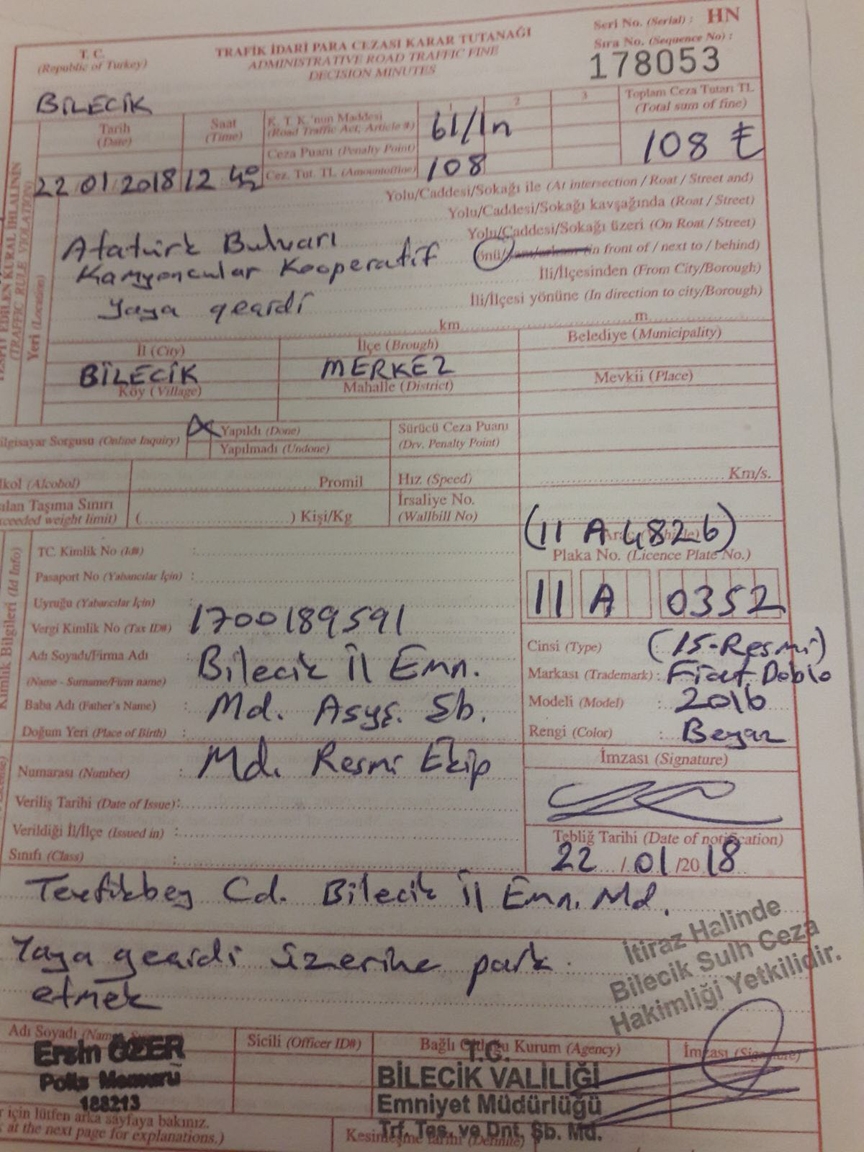 T. C.
(Republic of Turkey)
TRAFİK İDARİ PARA CEZASI KARAR TUTANAĞI
ADMINISTRATIVE ROAD TRAFFIC FINE
DECISION MINUTES
Seri No. (Serial) : HN
Sıra No. (Sequence No) :
178053
BİLECİK
Tarih
(Date)
Saat
(Time)
K. T. K.'nun Maddesi
(Road Traffic Act; Article #)
1 2 3
61/1n
Toplam Ceza Tutarı TL
(Total sum of fine)
Ceza Puanı (Penalty Point)
108 ₺
22 01 2018 12
Cez. Tut. TL.
108
Yolu/Caddesi/Sokağı ile (At intersection / Roat / Street and)
Yolu/Caddesi/Sokağı kavşağında (Roat / Street)
Yolu/Caddesi/Sokağı üzeri (On Roat / Street)
önü/ in front of / next to / behind)
İli/İlçesinden (From City/Borough)
İli/İlçesi yönüne (In direction to city/Borough)
(TRAFFIC RULE VIOLATION)
Yeri (Location)
Atatürk Bulvarı
Kamyoncular Kooperatif
Yaya geçidi
km m
İl (City)
İlçe (Brough)
Belediye (Municipality)
BİLECİK
MERKEZ
Köy (Village)
Mahalle (District)
Mevkii (Place)
ilgisayar Sorgusu (Online Inquiry)
Yapıldı (Done)
Yapılmadı (Undone)
Sürücü Ceza Puanı
(Dev. Penalty Point)
lkol (Alcohol)
Promil
Hız (Speed)
Km/s.
ılan Taşıma Sınırı
ceeded weight limit)
( ) Kişi/Kg
İrsaliye No.
(Wallbill No)
(11 A 4826)
Kimlik Bilgileri (Id Info)
TC. Kimlik No (Id#) :
Plaka No. (Licence Plate No.)
Pasaport No (Yabancılar İçin) :
11 A 0352
Uyruğu (Yabancılar İçin) :
Vergi Kimlik No (Tax ID#) : 1700189591
Cinsi (Type) (15-Resmi)
Adı Soyadı/Firma Adı
(Name - Surname/Firm name) : Bilecik İl Emn.
Markası (Trademark) : Fiat Doblo
Baba Adı (Father's Name) : Md. Asyş. Şb.
Modeli (Model) : 2016
Doğum Yeri (Place of Birth) :
Rengi (Color) : Beyaz
Numarası (Number) : Md. Resmi Ekip
İmzası (Signature)
Veriliş Tarihi (Date of Issue):
Verildiği İl/İlçe (Issued in) :
Tebliğ Tarihi (Date of notification)
Sınıfı (Class) :
22 /01 /2018
Tevfikbey Cd. Bilecik İl Emn. Md.
Yaya geçidi üzerine park
etmek
İtiraz Halinde
Bilecik Sulh Ceza
Hakimliği Yetkilidir.
Adı Soyadı
Ersin ÖZER
Polis Memuru
188213
Sicili (Officer ID#)
Bağlı Kurum (Agency)
T.C.
BİLECİK VALİLİĞİ
Emniyet Müdürlüğü
Trf. Tes. ve Dnt. Şb. Md.
İmzası (Signature)
için lütfen arka sayfaya bakınız.
at the next page for explanations.)